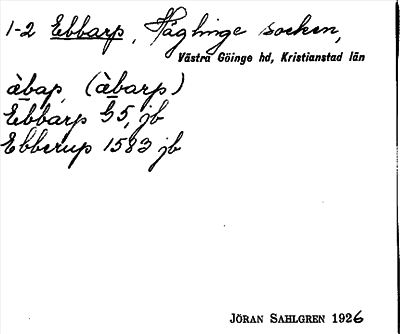 1-2 Ebbarp, Häglinge socken,
Västra Göinge hd, Kristianstad län
àbap, (àbarp)
Ebbarp G5, jb
Ebberup 1583 jb
JÖRAN SAHLGREN 1926